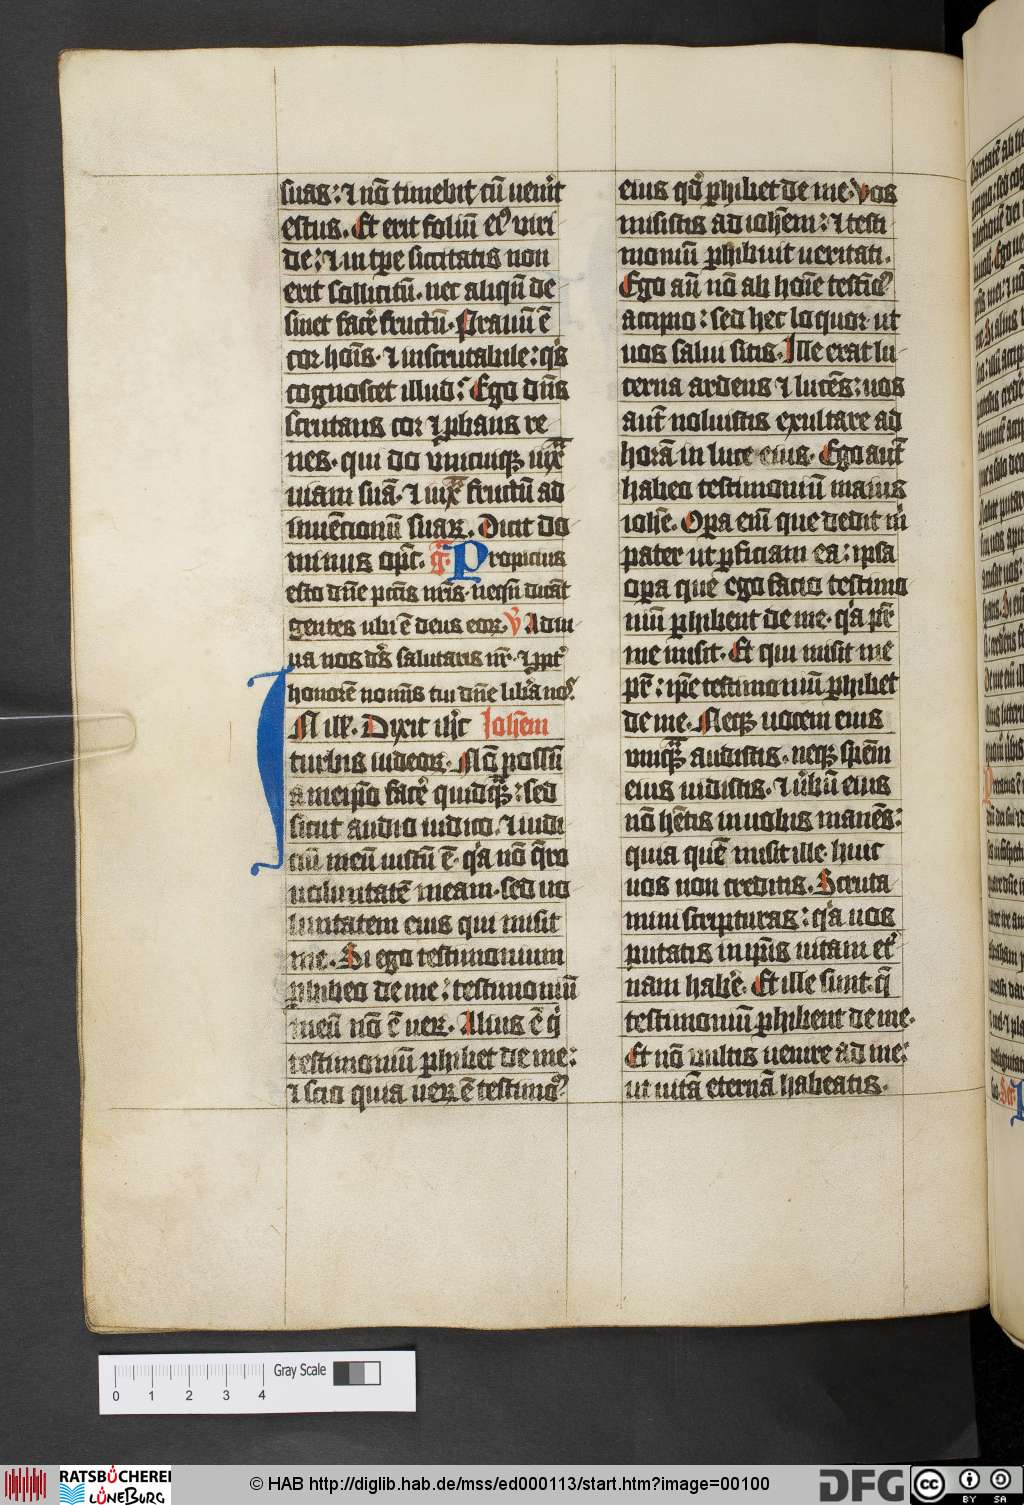 suas: ⁊ nō timebit cū uenꝰit
estus. Et erit foliū eiꝰ viri
de: ⁊ in tꝑe siccitatis non
erit sollicitū. nec aliqn̄ de
sinet facꝰe fructū. Prauū ē
cor hoīs. ⁊ inscrutabile: qͥs
cognoscet illud: Ego dn̄s
scrutans cor ⁊ ꝓbans re
nes. qui do vnicuiqꝫ iuxͣ
uiam suā. ⁊ iuxͣ fructū ad
inuēcionū suaꝝ. Dicit do
minus opīc. g. Propicius
esto dn̄e pctīs nr̄is. neqn̄ dicāt
gentes ubi ē deus eoꝝ. V Adiu
ua nos dꝰs salutaris nr̄. ⁊ ꝓptꝰ
honorē nomīs tui dn̄e libͣa noˢ.
IN ill. Dixit ih̄c Ioh̄em
turbis iudeoꝝ. Nō possū
a meip̄o facꝰe quidqͣꝫ: sed
sicut audio iudico. ⁊ iudi
ciū meū iustū ē. qͥa nō q̄ro
uoluntatē meam. sed uo
luntatem eius qui misit
me. Si ego testimonium
ꝑhibeo de me: testimoniū
meū nō ē ueꝝ. Alius ē qͥ
testimoniū ꝑhibet de me:
⁊ scio quia ueꝝ ē testimoꝰ
eius qđ ꝑhibet de me. Vos
misistis ad ioh̄em: ⁊ testi
moniū ꝑhibuit ueritati.
Ego aū nō ab hoīe testīoꝰ
accipio: sed hec loquor ut
uos salui sitis. Ille erat lu
cerna ardens ⁊ lucēs: uos
aut̄ noluistis exultare ad
horā in luce eius. Ego aut̄
habeo testimoniū maius
ioh̄e. Opͣa enī que dedit mͥ
pater ut ꝑficiam ea: ipsa
opͣa que ego facio testimo
niū ꝑhibent de me. qͥa pr̄
me misit. Et qui misit me
pr̄: ip̄e testimoniū ꝑhibet
de me. Neqꝫ uocem eius
vnqͣꝫ audistis. neqꝫ spēm
eius uidistis. ⁊ ūbū eius
nō hētis in uobis manēs:
quia quē misit ille. huic
uos non creditis. Scruta
mini scripturas: qͥa uos
putatis in ip̄is uitam etꝰ
nam habꝰe. Et ille sunt. q̄
testimoniū ꝑhibent de me.
Et nō vultis uenire ad me:
ut uitā eternā habeatis.
0 1 2 3 4
Gray Scale
RATSBÜCHEREI
LÜNEBURG
© HAB http://diglib.hab.de/mss/ed000113/start.htm?image=00100
DFG
cc BY SA